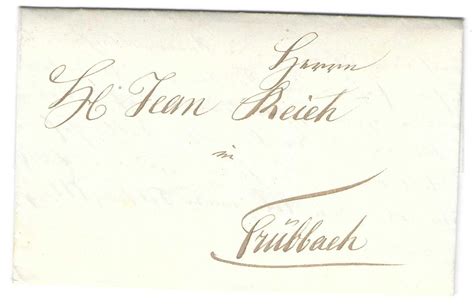 Herrn
H. Jean Reich
in
Trübbach